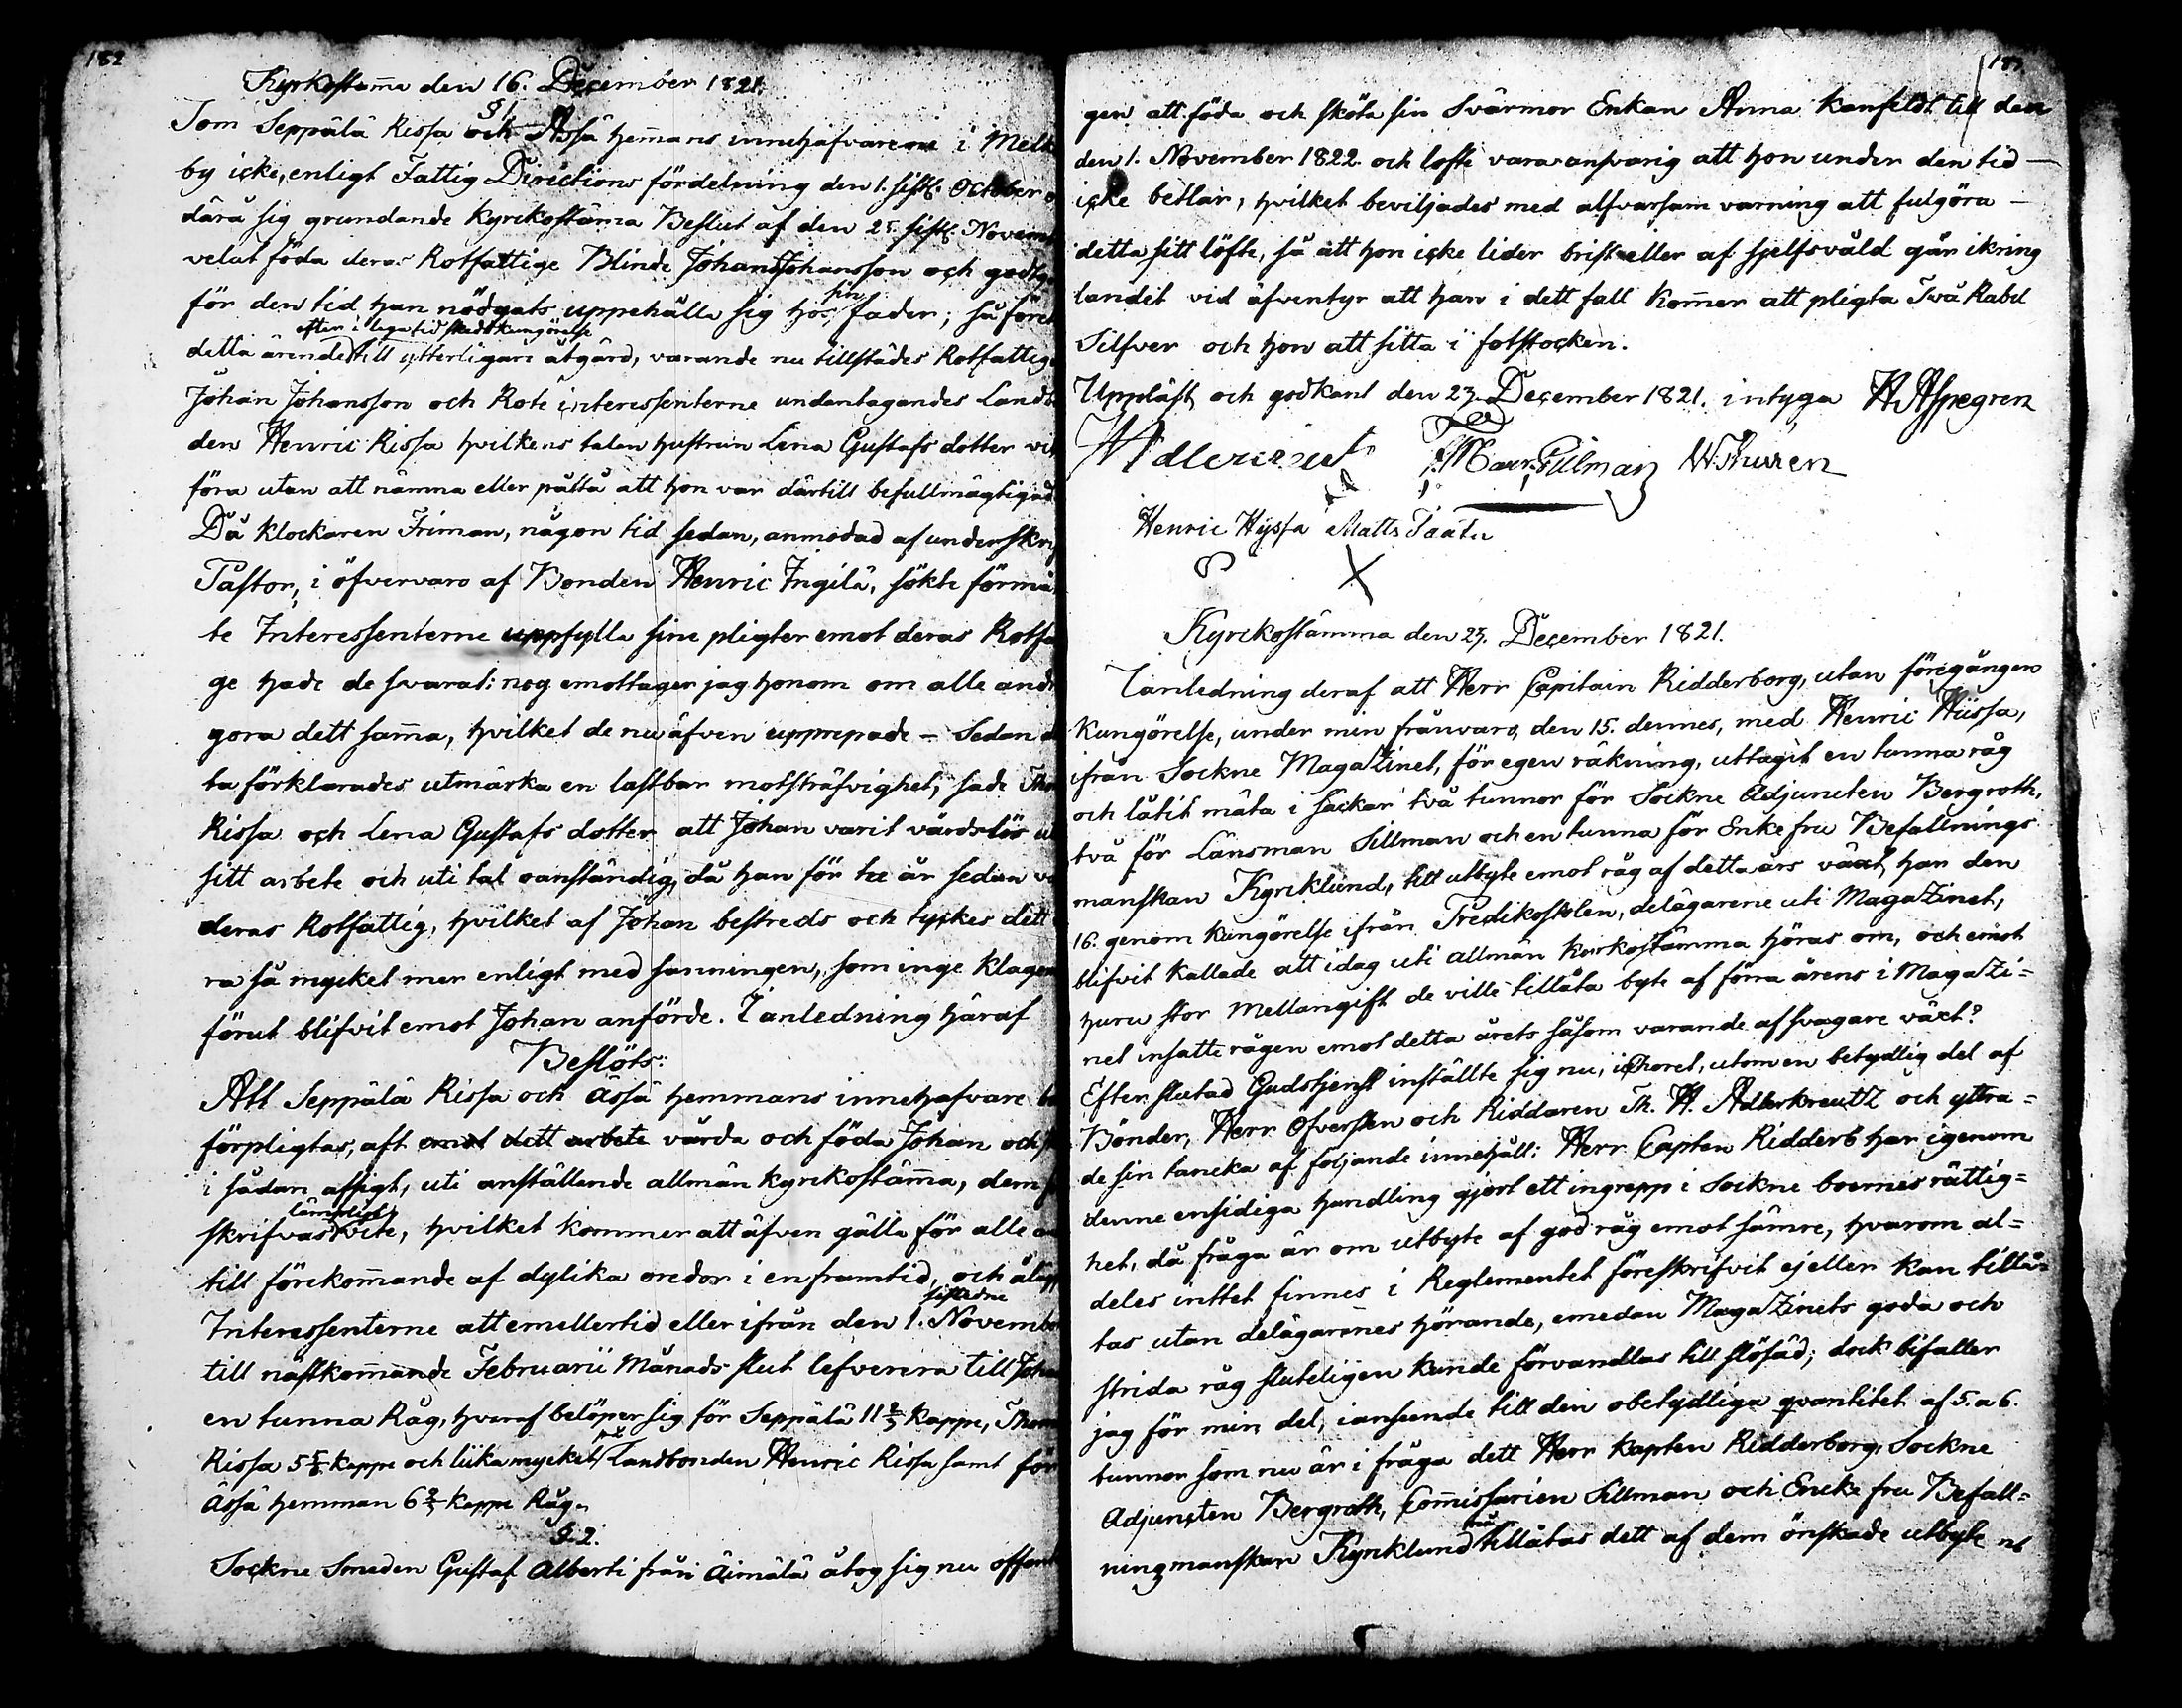 182
Kyrkostam̅a den 16. December 1821.
§ 1.
Som Seppälä Rissa och Ässä hem̅ans innehafvare i Melt
by icke, enligt Fattig Directions fördelning den 1. sistl. October o
därå sig grundande Kyrckostäm̅a Beslut af den 25 sistl. Novemb
velat föda deras Rotfattige Blinde Johan Johansson och godtg
för den tid han nödgats uppehålla sig hos sin fader; så före
efter i laga tid skedd kungörelse
detta ärende till ytterligare åtgärd, varande nu tillstädes Rotfattig
Johan Johansson och Rote interessenterne undantagandes Landb
den Henric Rissa hvilkens talan hustrun Lena Gustafs dotter vil
föra utan att nämna eller påstå att hon var därtill befullmägtigad
Då Klockaren Friman, någon tid sedan, anmodad af underskr
Pastor, i öfvervaro af Bonden Henric Ingilä, sökte förmå
te Interessenterne uppfylla sine pligter emot deras Rotfa
ge hade de svarat: nog emottager jag honom om alle andr
gora dett sam̅a, hvilket de nu äfven upprepade – Sedan de
ta förklarades utmärka en lastbar motsträfvighet, sade Tho
Rissa och Lena Gustafs dotter att Johan varit vårdslös u
sitt arbete och uti tal oanständig, då han för tre år sedan va
deras Rotfattig, hvilket af Johan bestreds och tyckes dett
ra så mycket mer enligt med sanningen, som inge klago
förut blifvit emot Johan anförde. I anledning häraf
Beslöts:
Att Seppälä Rissa och Ässä hemmans innehafvare b
förpligtas, att emot dett arbete vårda och föda Johan och
i sådan afsigt, uti anställande allmän kyrckostäm̅a, dem f
skrifvas lämpligt vite, hvilket kommer att äfven gälla för alle a
till förekom̅ande af dylika oredor i en framtid, och åläg
Interessenterne att emellertid eller ifrån den 1. sistledne Novembe
till nästkom̅ande Februarii Månads slut lefverera till Joha
en tunna Råg, hvaraf belöper sig för Seppälä 11 2/3 kappe, Thom
Rissa 5 5/6 kappe och lika mycket på Landbonden Henric Rissa samt för
Ässä hemman 6 2/3 kappe Råg.
§. 2.
Sockne Smeden Gustaf Alberti från Äimälä åtog sig nu offent
183
gen att föda och sköta sin Svärmor Enkan Anna Kanfeldt till den
den 1. November 1822. och lofte vara ansvarig att hon under den tid –
icke betlar, hvilket beviljades med alfvarsam varning att fulgöra –
detta sitt löfte, så att hon icke lider brist eller af sjelfsvåld går ikring
landet vid äfventyr att han i dett fall kom̅er att pligta Två Rabel
Silfver och hon att sitta i fotstocken.
Uppläst och godkänt den 23. December 1821. intyga H Aspegren
Adlercreutz Sillman W Thuren
Henric Hyssa Matts Paatu
Kyrckostämma den 23. December 1821.
I anledning deraf att Herr Capitain Ridderborg, utan föregången
Kungörelse, under min frånvaro, den 15. dennes, med Henric Hiissa,
ifrån Sockne Magazinet, för egen räkning, uttagit en tunna råg
och låtit mäta i säckar två tunnor för Sockne Adjuncten Bergroth,
två för Länsman Sillman och en tunna för Enke fru Befallnings
manskan Kyrcklund, till utbyte emot råg af detta års växt, har den
16. genom kungörelse ifrån Predikostolen, delägarene uti Magazinet,
blifvit kallade att idag uti allmän kyrkostämma höras om, och emot
huru stor mellangift de ville tillåta byte af förra årens i Magazi=
net insatte rågen emot detta årets såsom varande af svagare växt?
Efter slutad Gudstjenst inställte sig nu, i Choret, utom en betydlig del af
Bönder, Herr Öfversten och Riddaren Th. H. Adlerkreutz och yttra=
de sin tancka af foljande innehåll: Herr Capten Ridderb har igenom
denne ensidiga handling gjort ett ingrepp i Sockne boernes rättig=
het, då fråga är om utbyte af god råg emot sämre, hvarom al=
deles inttet finnes i Reglementet föreskrifvit ejeller kan tillå=
tas utan delägarnes hörande, emedan Magazinets goda och
strida råg sluteligen kunde förvandlas till slösäd; dock bifaller
jag för min del, i anseende till den obetydliga qvantitet af 5. a 6.
tunnor som nu är i fråga dett Herr Kapten Ridderborg, Sockne
Adjuncten Bergroth, Com̅issarien Sillman och Encke fru Befall=
ningmanskan Kyrcklund må tillåtas dett af dem önskade utbyte